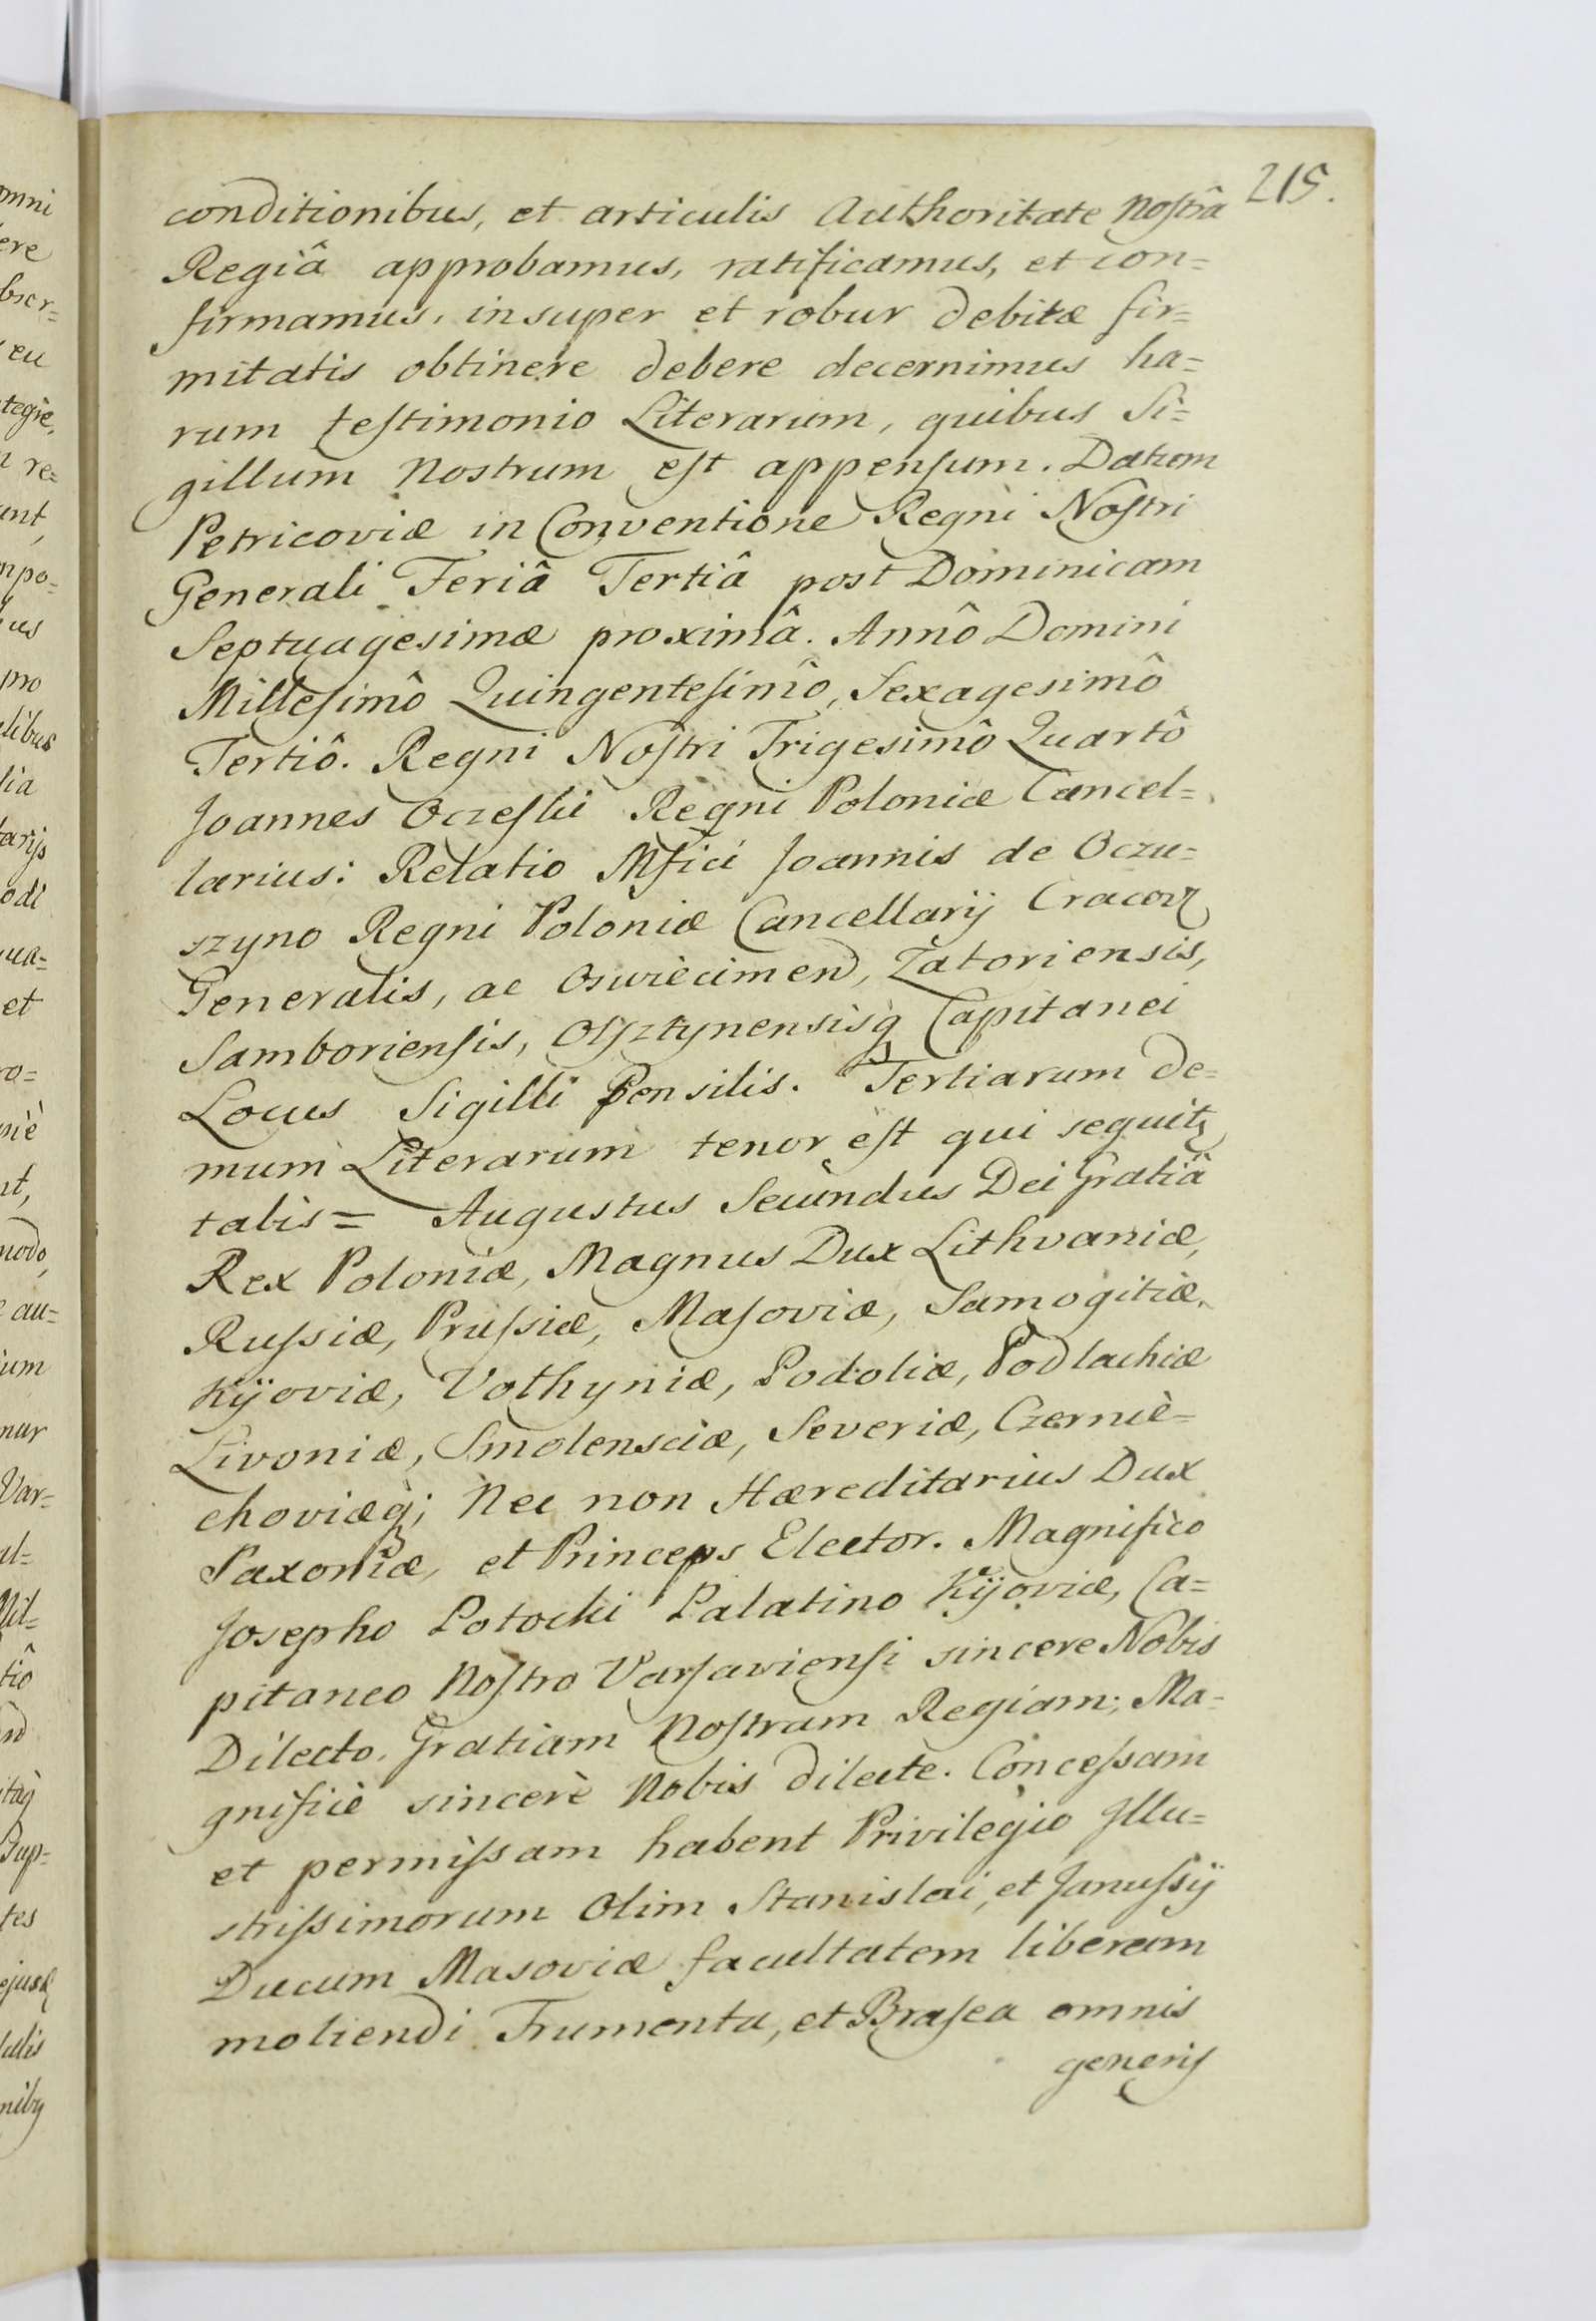 215.
conditionibus, et articulis Authoritate Nostrâ
Regiâ approbamus, ratificamus, et con=
firmamus, insuper et robur debitæ fir=
mitatis obtinere debere decernimus ha=
rum testimonio Literarum, quibus Si=
gillum Nostrum est appensum. Datum
Petricoviæ in Conventione Regni Nostri
Generali Feriâ Tertiâ post Dominicam
Septuagesimæ proximâ. Annô Domini
Millesimô Quingentesimô, Sexagesimô
Tertiô. Regni Nostri Trigesimô Quartô
Joannes Oczeski Regni Poloniæ Cancel=
larius: Relatio Mfici Joannis de Oczu=
szyno Regni Poloniæ Cancellarij Cracov
Generalis, ac Oswiècimen, Zatoriensis,
Samboriensis, Olsztynensisq Capitanei
Locus Sigilli Pensilis. Tertiarum de=
mum Literarum tenor est qui sequit
talis = Augustus Secundus Dei Gratiâ
Rex Poloniæ, Magnus Dux Lithvaniæ,
Russiæ, Prussiæ, Masoviæ, Samogitiæ,
Kijoviæ, Volhyniæ, Podoliæ, Podlachiæ
Livoniæ, Smolensciæ, Severiæ, Czernie=
choviæq; Nec non Hæreditarius Dux
Saxoniæ, et Princeps Elector. Magnifico
Josepho Potocki Palatino Kijoviæ, Ca=
pitaneo Nostro Varsaviensi sincere Nobis
Dilecto. Gratiam Nostram Regiam; Ma=
gnificè sincerè Nobis dilecte. Concessam
et permissam habent Privilegio Illu=
strissimorum Olim Stanislai, et Janussij
Ducum Masoviæ facultatem liberam
moliendi Frumenta, et Brasea omnis
generis
omni
ere
eu
tegrè,
re=
unt,
mpo=
us
pro
lia
odi
qua=
et
ro=
niè
nt,
modo,
au=
Var=
al=
tes